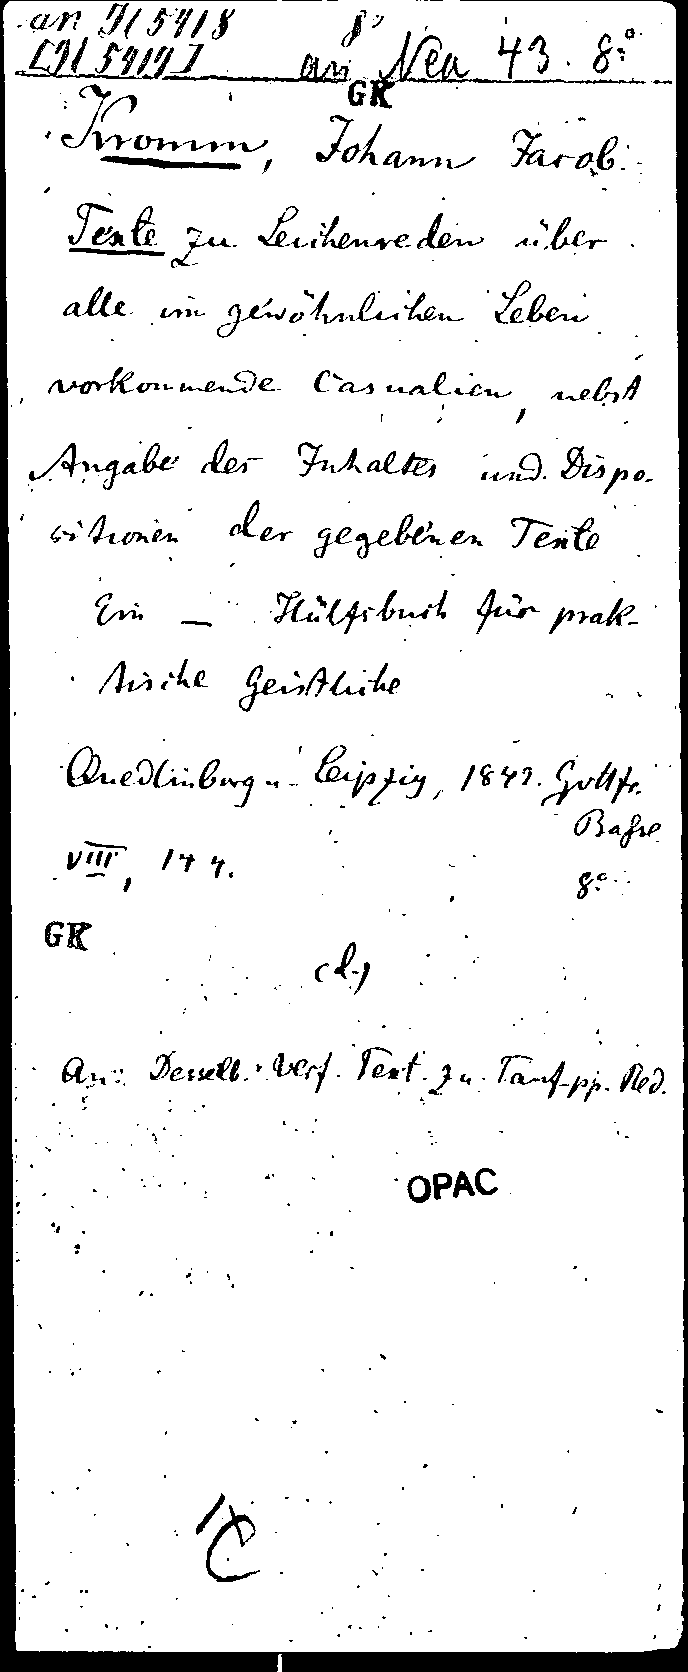 an Jl 5918 8°
[Jl 5919] an Nea 43. 8°
GK
Kromm, Johann Jacob
Texte zu Leichenreden über
alle im gewöhnlichen Leben
vorkommende Casualien, nebst
Angabe des Inhaltes und Dispo-
sitionen der gegebenen Texte
Ein — Hülfsbuch für prak-
tische Geistliche
Quedlinburg u. Leipzig, 1842. Gottfr.
Basse
VIII, 144. 8°
GK
(d.)
An: Desselb. Verf. Text. zu Tauf- pp. Red.
OPAC